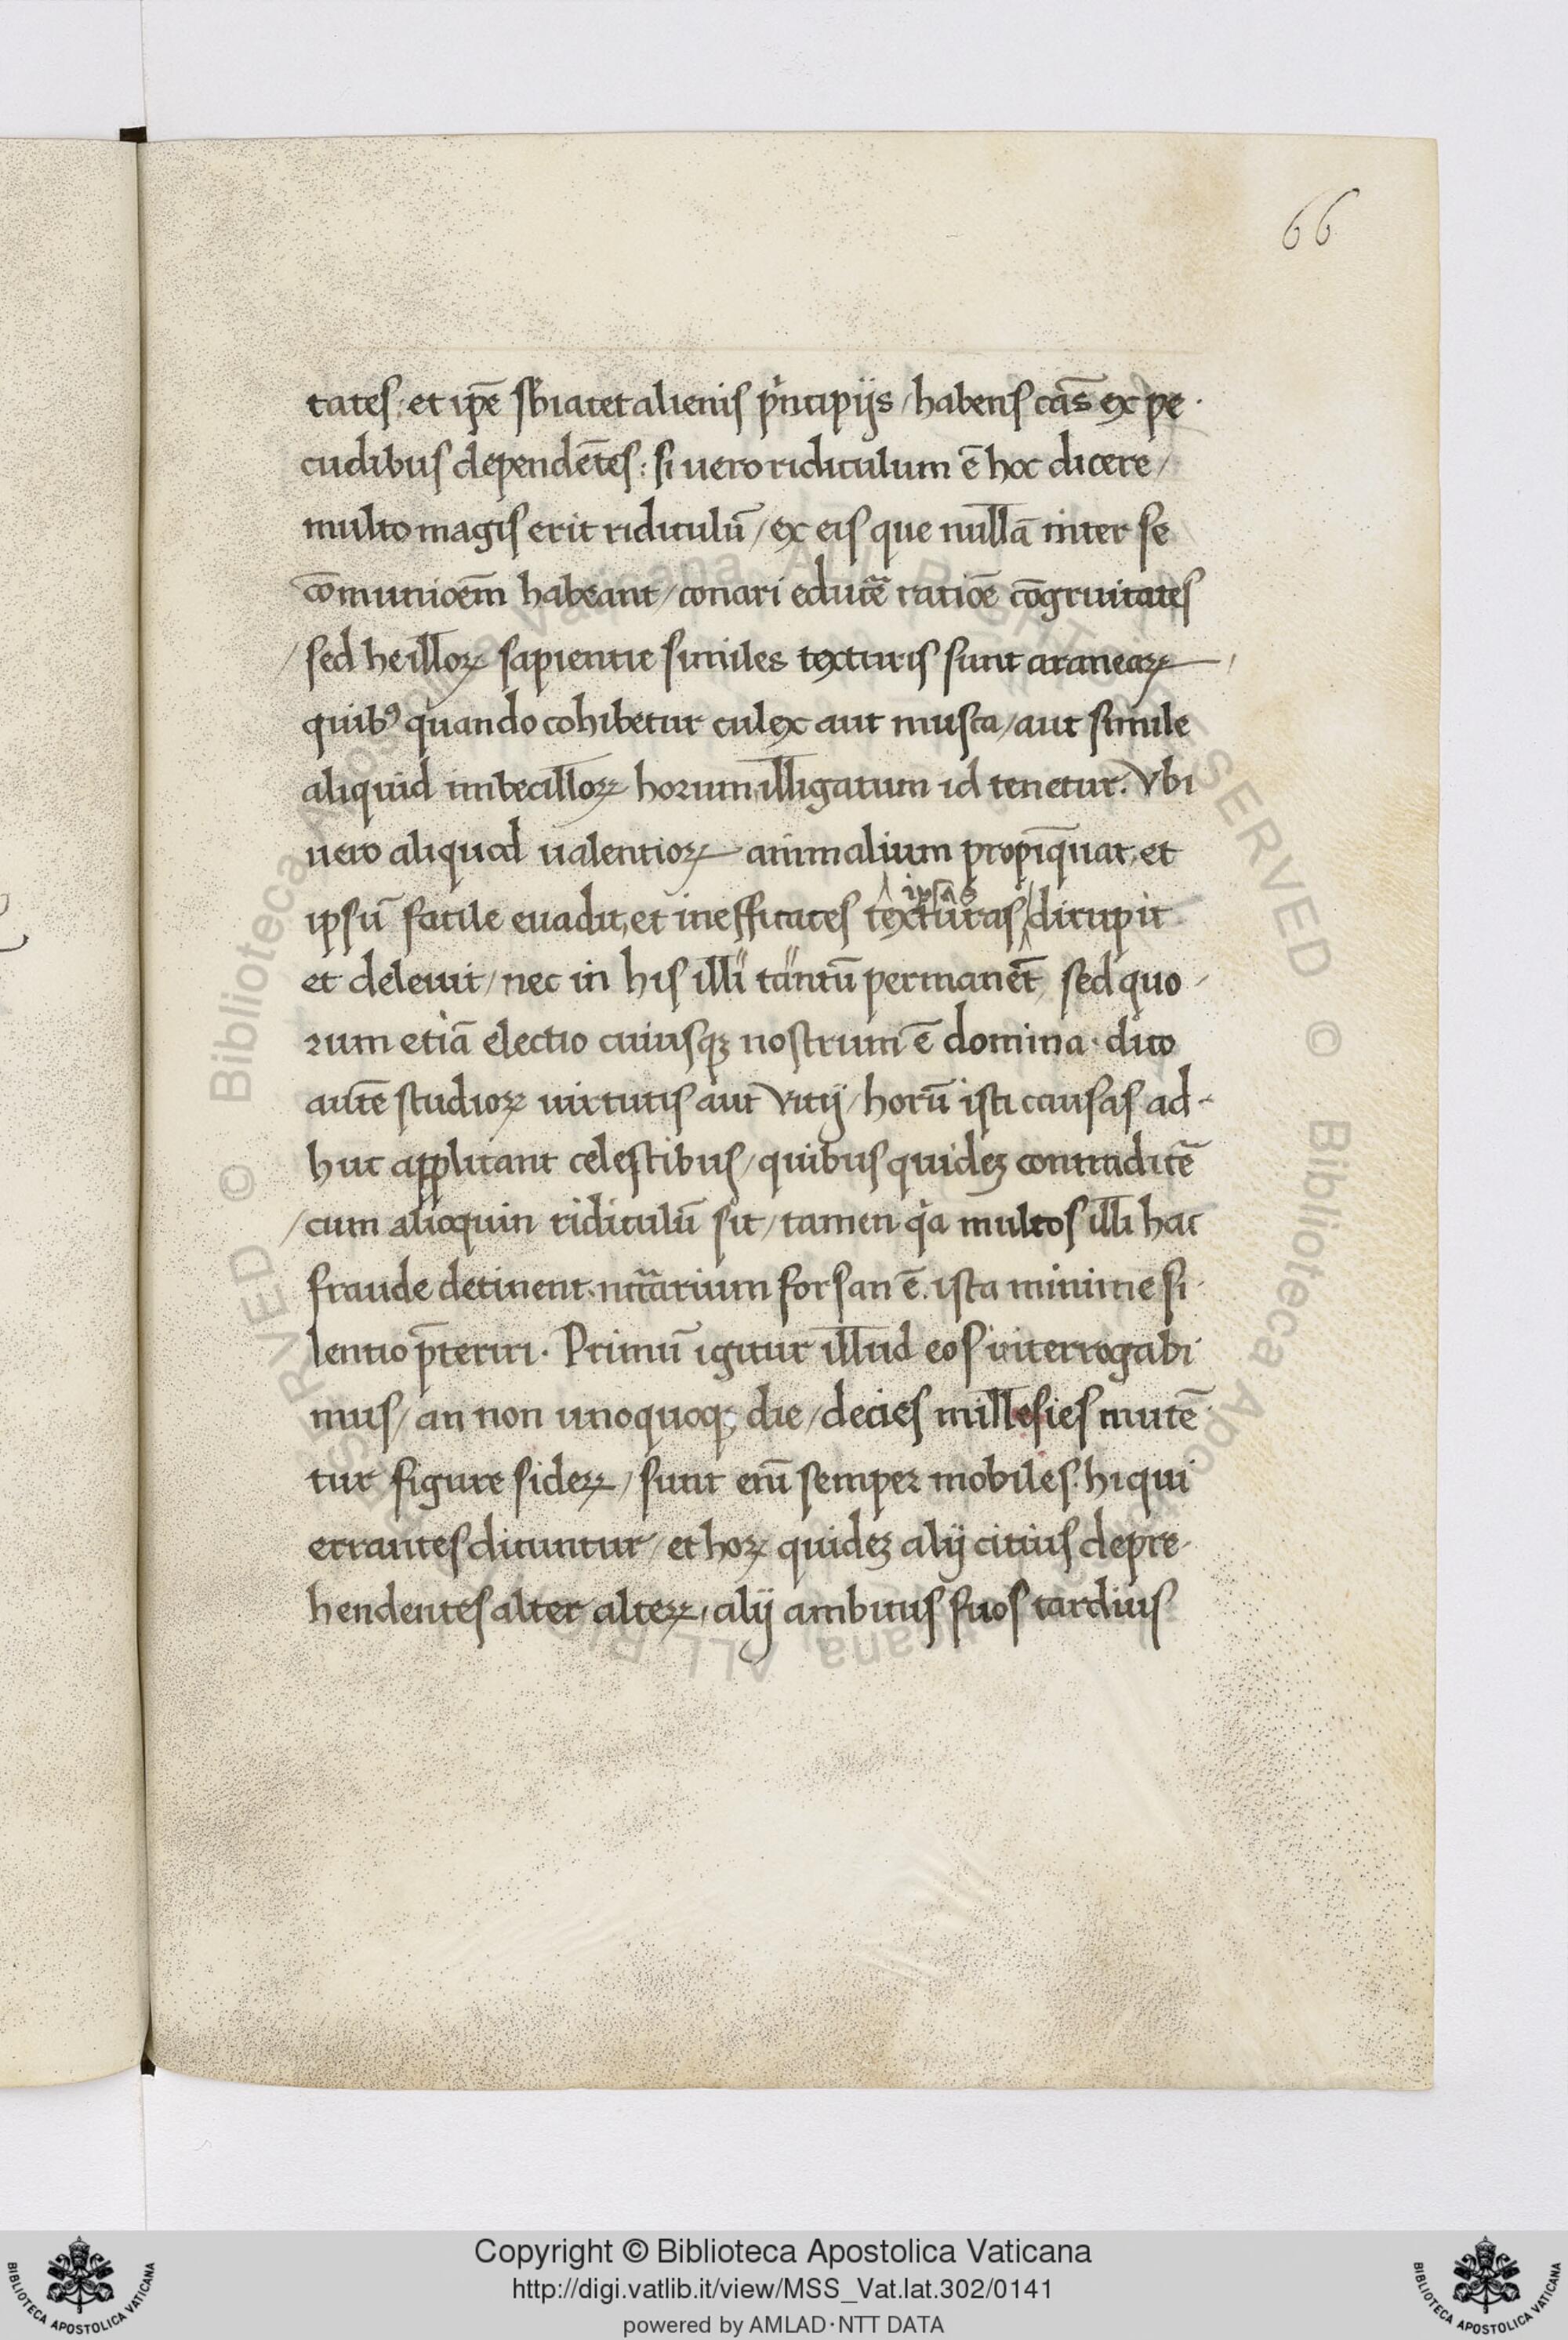 66
tates: et ip̄e sb̄iacet alienis pⁱncipijs / habens cās̄ ex pe·
cudibus dependētes: si uero ridiculum ē hoc dicere /
multo magis erit ridiculū / ex eis que nullā inter se
cōmunioem̄ habeant / conari educē ratiōe cōgruitates
/ sed he illoꝝ sapientie similes texturis sunt araneaꝝ
quibꝰ quando cohibetur culex aut musca / aut simile
aliquid imbecilloꝝ horum illigatum id tenetur. Vbi
uero aliquod ualentioꝝ animalium propīquat, et
ipsū facile euadit, et inefficaces texturas ipsas dirupit
et deleuit / nec in his illi tantū permanet̄, sed quo
rum etiā electio cuiusqꝫ nostrum ē domina· dico
autē studioꝝ uirtutis aut Vitij / horū isti causas ad-
huc applicant celestibus / quibus quideꝫ contradicē
/ cum alioquin ridiculū sit / tamen qⁱa multos illi hac
fraude detinent· nc̄c̄arium forsan ē. ista minime si·
lentio p̄teriri. Primū igitur illud eos interrogabi
mus / an non unoquoqꝫ die / decies millesies mutē·
tur figure sideꝝ / sunt enī semper mobiles. hi qui
errantes dicuntur / et hoꝝ quideꝫ alij citius depre·
hendentes alter alteꝝ, alij ambitus suos tardius
Copyright © Biblioteca Apostolica Vaticana
http://digi.vatlib.it/view/MSS_Vat.lat.302/0141
powered by AMLAD·NTT DATA
BIBLIOTECA APOSTOLICA VATICANA
BIBLIOTECA APOSTOLICA VATICANA